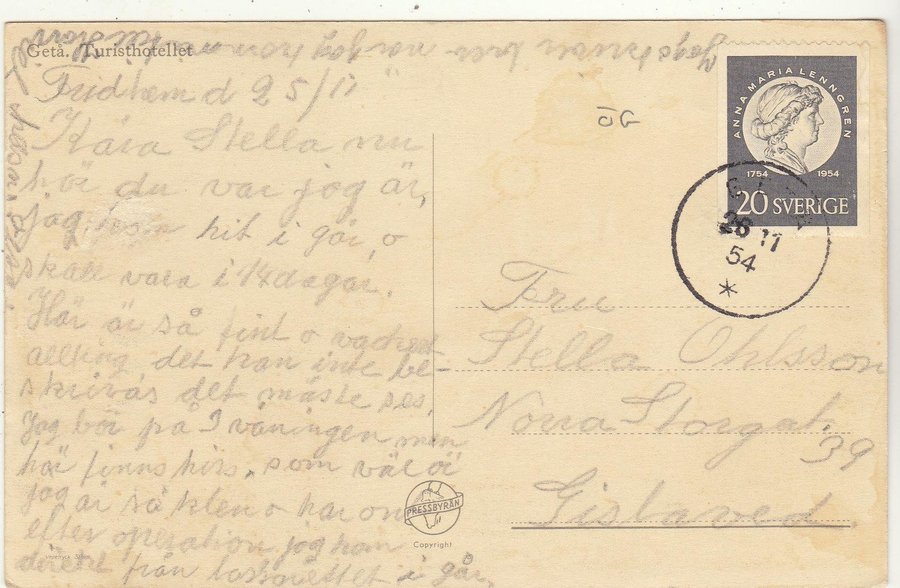 Getå. Turisthotellet
Fridhem d 25/11
Kära Stella nu
hör du var jag är,
jag kom hit i går, o
skall vara i 14 dagar.
Här är så fint o vackert
allting, det kan inte be-
skrivas det måste ses.
Jag bor på 3 våningen men
här finns hiss, som väl är
jag är så klen o har ont
efter operation, jag kom
direkt från lasarettet i går,
ÖG
ANNA MARIA LENNGREN
1754 1954
20 SVERIGE
26 11
54
Fru
Stella Ohlsson
Norra Storgat.
39
Gislaved
PRESSBYRÅN
Copyright